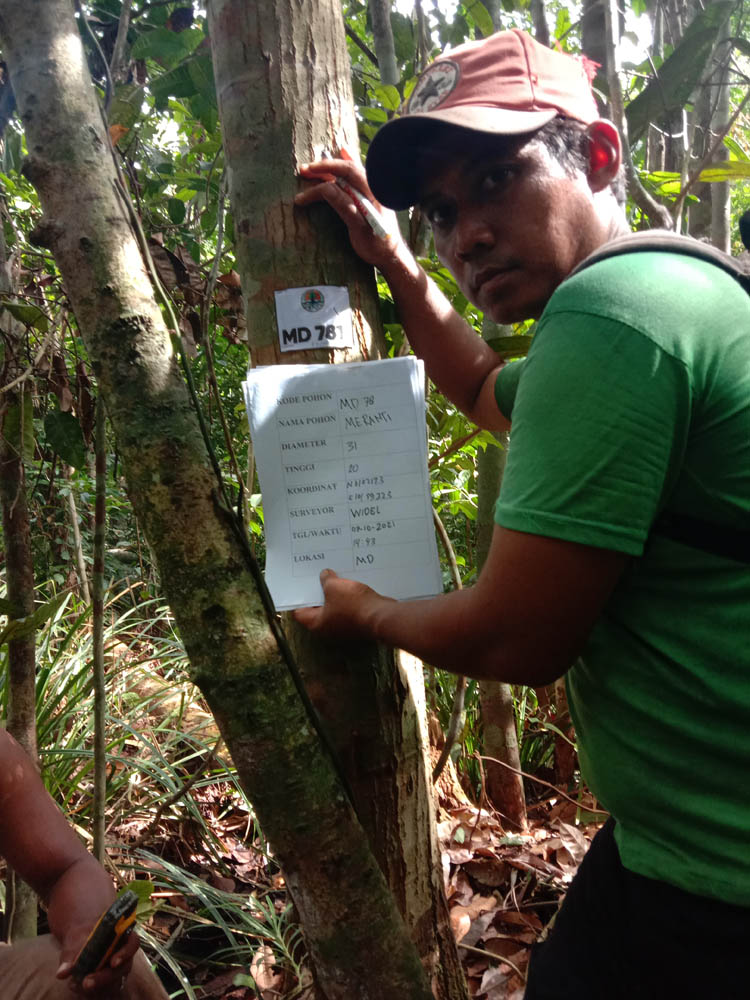 MD 781
KODE POHON MD 78
NAMA POHON MERANTI
DIAMETER 31
TINGGI 20
KOORDINAT
SURVEYOR WIDEL
TGL/WAKTU 09-10-2021
14:43
LOKASI MD